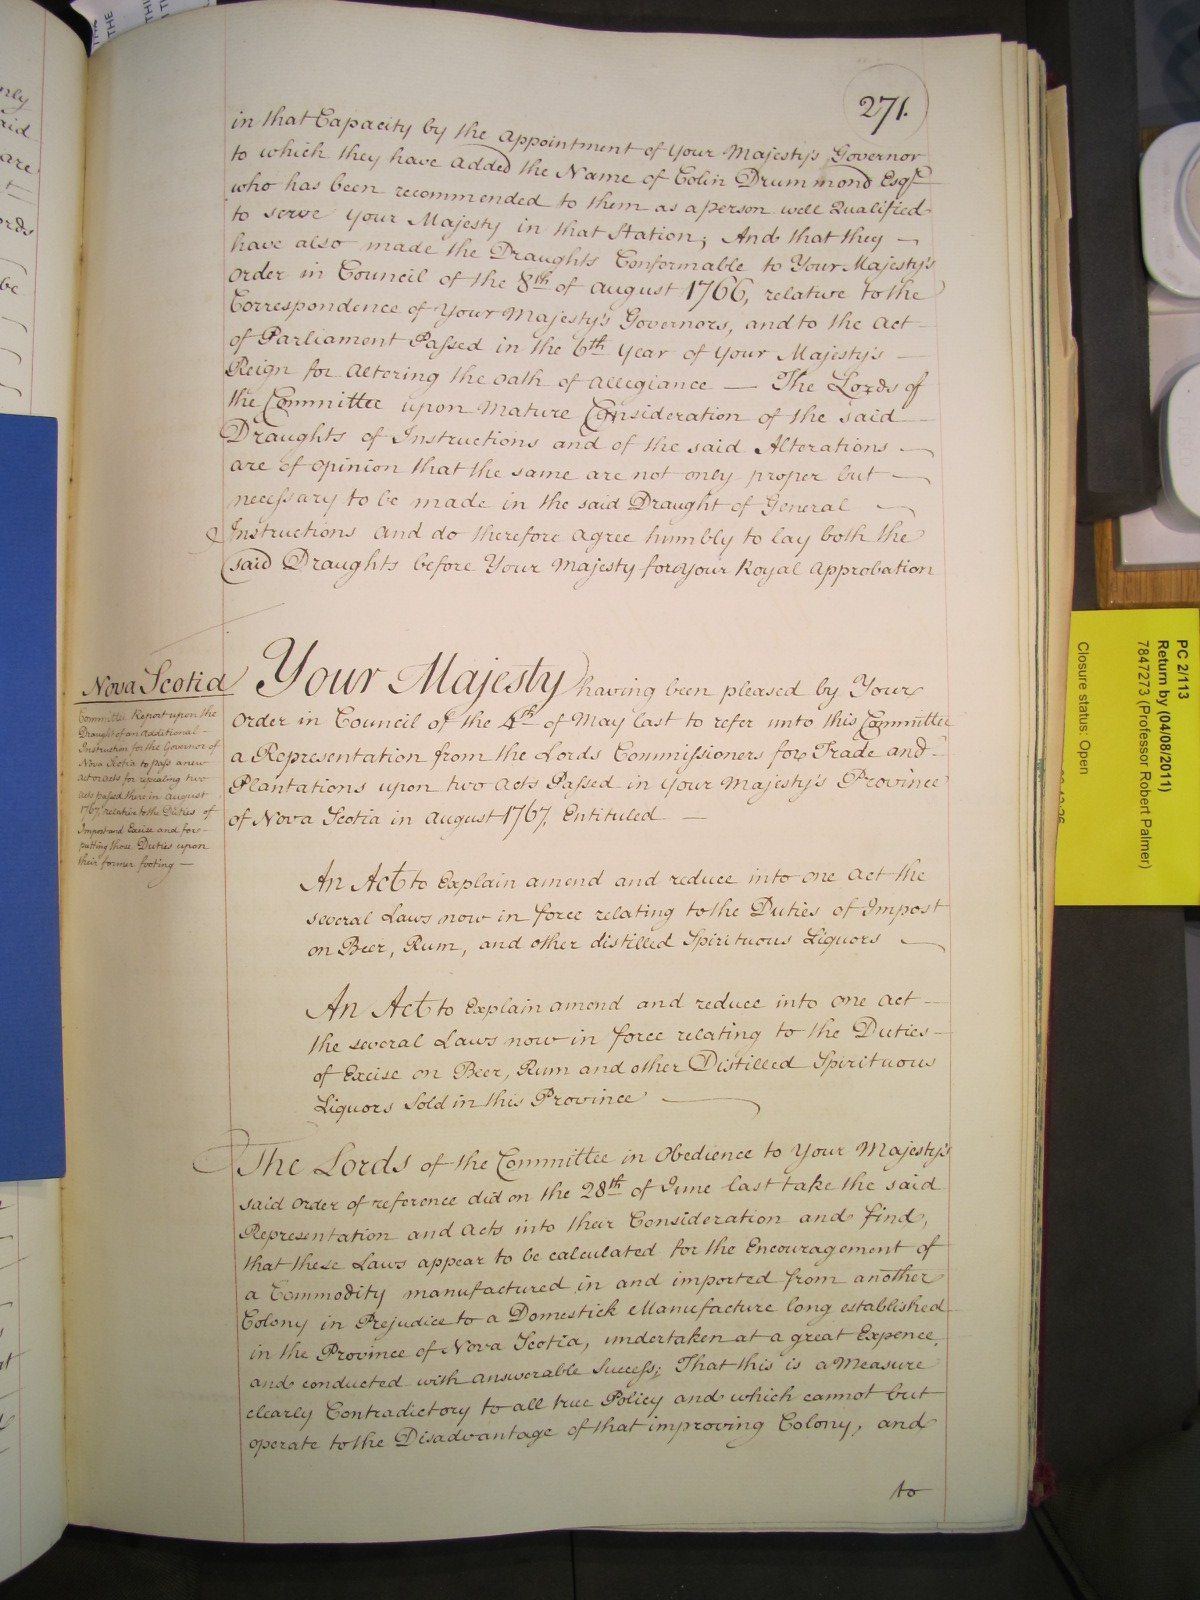 271.
in that Capacity by the appointment of Your Majesty's Governor
to which they have added the Name of Colin Drummond Esqr.
who has been recommended to them as a person well Qualified
to serve Your Majesty in that Station; And that they
have also made the Draughts Conformable to Your Majesty's
Order in Council of the 8th of August 1766, relative to the
Correspondence of Your Majesty's Governors, and to the Act
of Parliament Passed in the 6th Year of Your Majesty's
Reign for altering the Oath of Allegiance — The Lords of
the Committee upon Mature Consideration of the said
Draughts of Instructions and of the said Alterations
are of opinion that the same are not only proper but
necessary to be made in the said Draught of General
Instructions and do therefore agree humbly to lay both the
said Draughts before Your Majesty for Your Royal Approbation
Nova Scotia
Committee Report upon the
Draught of an additional
Instruction for the Governor of
Nova Scotia to pass a new
act or acts for repealing two
acts passed there in August
1767, relative to the Duties of
Impost and Excise and for
putting those Duties upon
their former footing —
Your Majesty having been pleased by Your
Order in Council of the 4th of May last to refer unto this Committee
a Representation from the Lords Commissioners for Trade and
Plantations upon two Acts Passed in Your Majesty's Province
of Nova Scotia in August 1767, Entituled —
An Act to Explain amend and reduce into one Act the
several Laws now in force relating to the Duties of Impost
on Beer, Rum, and other distilled Spirituous Liquors
An Act to Explain amend and reduce into one Act
the several Laws now in force relating to the Duties
of Excise on Beer, Rum and other Distilled Spirituous
Liquors Sold in this Province
The Lords of the Committee in Obedience to Your Majesty's
said Order of reference did on the 28th of June last take the said
Representation and Acts into their Consideration and find,
that these Laws appear to be calculated for the Encouragement of
a Commodity manufactured in and imported from another
Colony in Prejudice to a Domestick Manufacture long established
in the Province of Nova Scotia, undertaken at a great Expence,
and conducted with answerable Success; That this is a Measure
clearly Contradictory to all true Policy and which cannot but
operate to the Disadvantage of that improving Colony, and
to
PC 2/113
Return by (04/08/2011)
7847273 (Professor Robert Palmer)
Closure status: Open